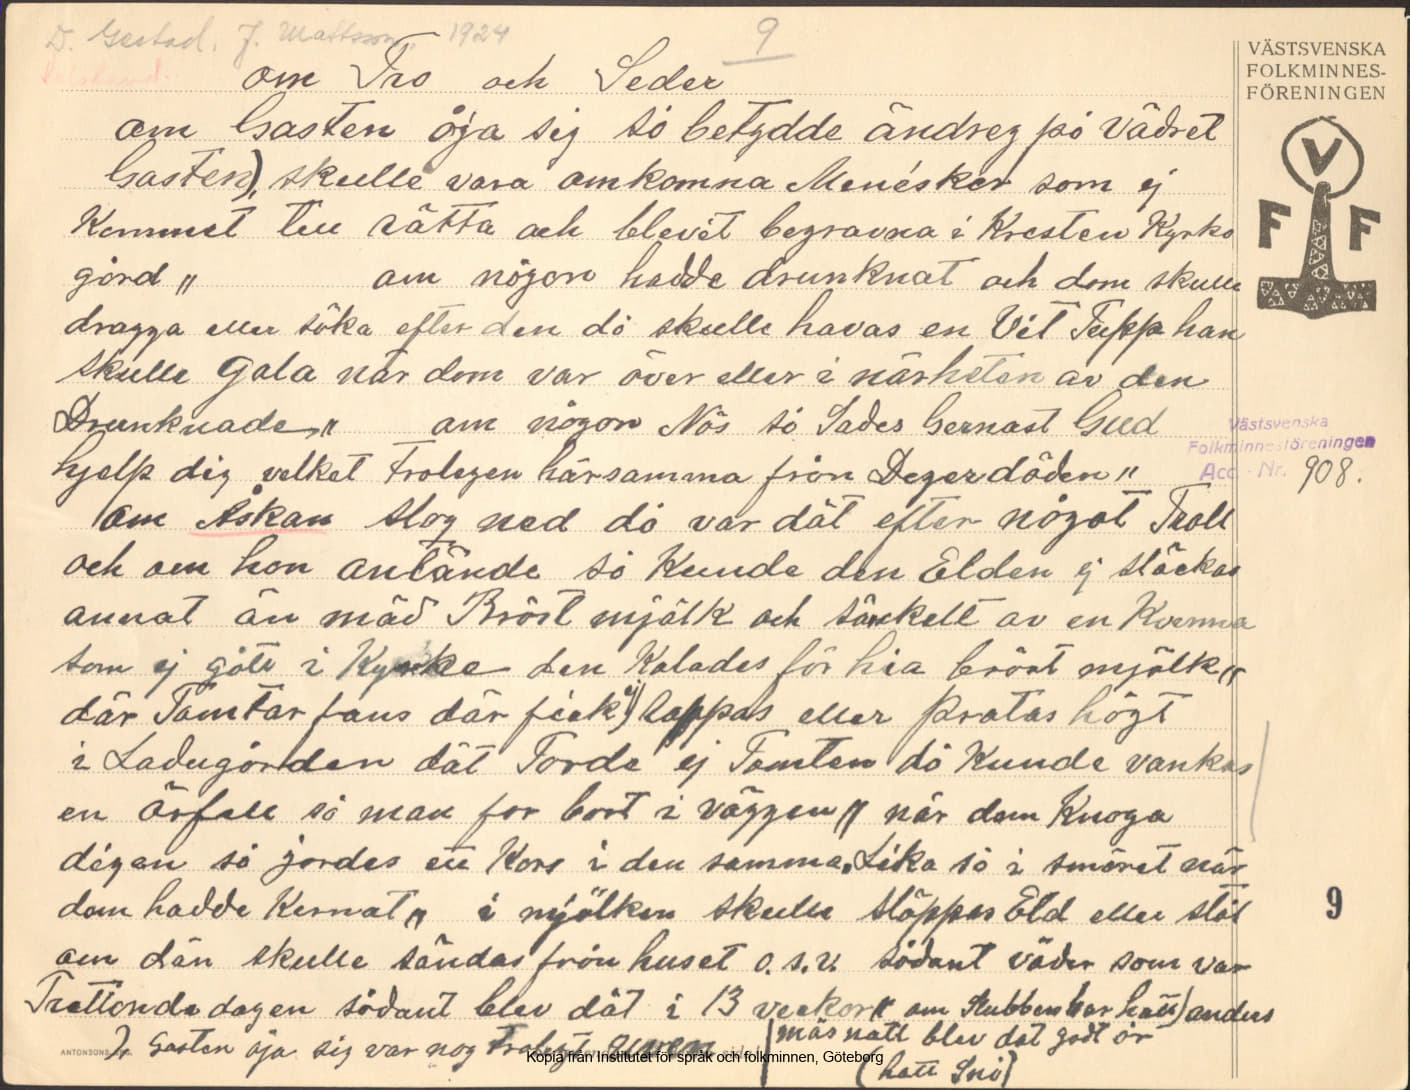 D. Gestad, J. Mattsson, 1924
9
om Tro och Seder
om Gasten öja sig so betydde ändreg po Vädret
Gasten), skulle vara omkomna Menesker som ej
Kommet till rätta och blevet begravna i Kresten Kyrko
gord „ om nögon hadde drunknat och dom skulle
dragga eller söka efter den do skulle havas en Vit Tupp han
skulle Gala när dom var över eller i närheten av den
Drunknade„ om nögon Nös so Sades Gernast Gud
hjelp dig velket trolegen härsamma från Degerdöden„
om Åskan slog ned do var dät efter nögot Troll
och om hon antände so Kunde den Elden ej släckas
annat än mäd Bröst mjölk och särkelt av en Kvenna
som ej gott i Kyrke den Kalades för hia bröst mjölk„
där Tomtar fans där fick ej) loppas eller pratas högt
i Ladugorden dät Torde ej Tomten do Kunde vankas
en örfell so man for bort i väggen„ när dom Knoga
degen so jordes ett Kors i den samma. Lika so i smöret när
dom hadde Kernat„ i mjölken skulle släppas Eld eller stol
om dän skulle sändas från huset o.s.v. södant väder som var
Trettonde dagen södant blev dät i 13 veckor„ om Stubben har hatt) anders
mäs natt blev dät godt or
(hatt Snö)
) Gasten öja sig var nog trolegt Uven
VÄSTSVENSKA
FOLKMINNES-
FÖRENINGEN
V
F F
Västsvenska
Folkminnesföreningen
Acc.-Nr. 908.
9
Kopia från Institutet för språk och folkminnen, Göteborg